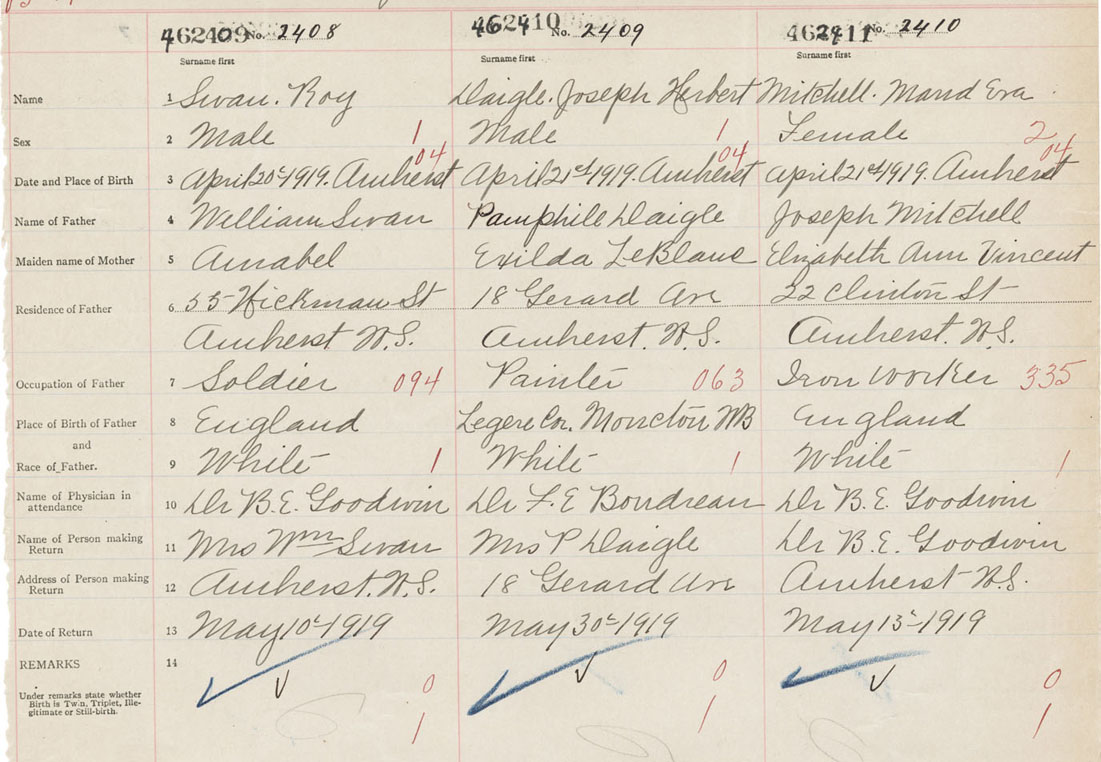 462409 No. 2408 462410 No. 2409 462411 No. 2410
Surname first Surname first Surname first
Name 1 Swan. Roy Daigle. Joseph Herbert Mitchell. Maud Eva
Sex 2 Male 1 Male 1 Female 2
04 04 04
Date and Place of Birth 3 April 20th 1919. Amherst April 21st 1919. Amherst April 21st 1919. Amherst
Name of Father 4 William Swan Pamphile Daigle Joseph Mitchell
Maiden name of Mother 5 Annabel Exilda LeBlanc Elizabeth Ann Vincent
Residence of Father 6 55 Hickman St 18 Gerard Ave 22 Clinton St
Amherst N.S. Amherst. N.S. Amherst. N.S.
Occupation of Father 7 Soldier 094 Painter 063 Iron Worker 335
Place of Birth of Father 8 England Legere Cor. Moncton NB England
and
Race of Father. 9 White 1 White 1 White 1
Name of Physician in
attendance 10 Dr B.E. Goodwin Dr F.E Boudreau Dr B.E. Goodwin
Name of Person making
Return 11 Mrs Wm Swan Mrs P Daigle Dr B.E. Goodwin
Address of Person making
Return 12 Amherst. N.S. 18 Gerard Ave Amherst N.S.
Date of Return 13 May 10th 1919 May 30th 1919 May 13th 1919
REMARKS 14
0 0 0
Under remarks state whether
Birth is Twin, Triplet, Ille-
gitimate or Still-birth.
1 1 1